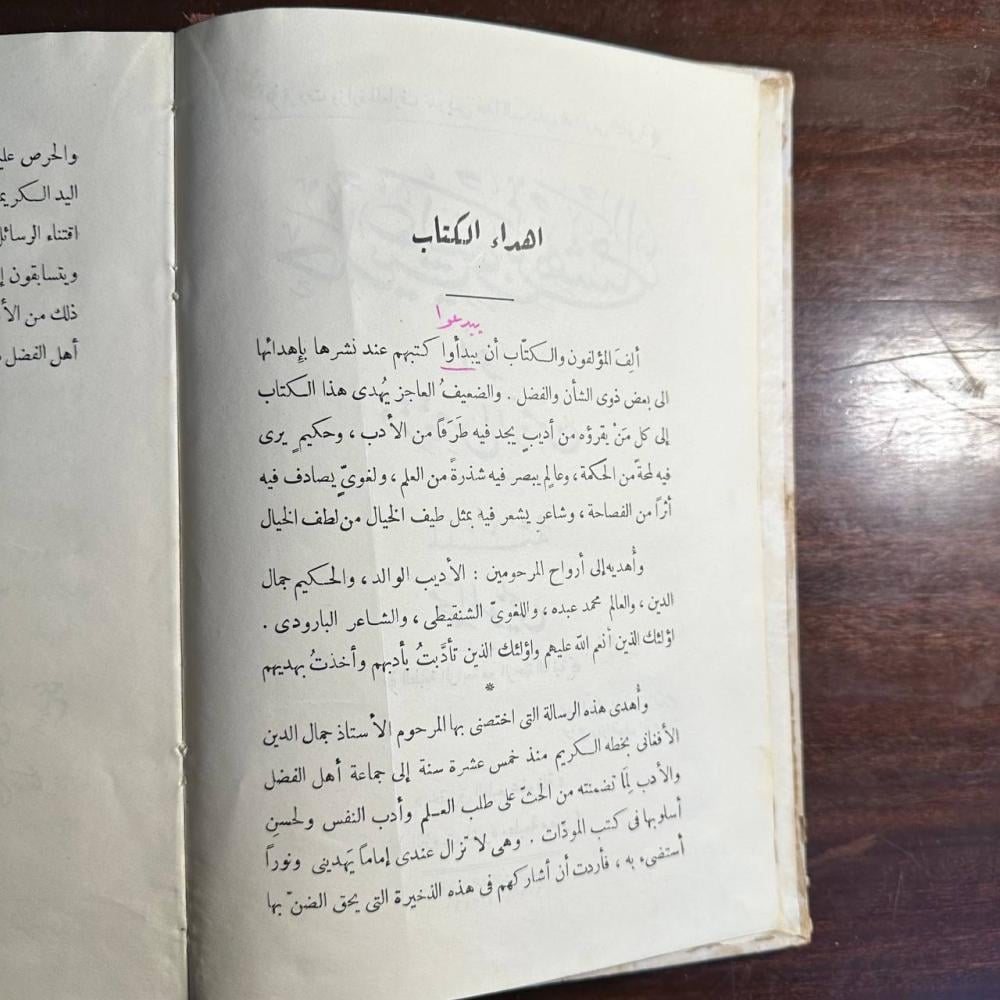 اهداء الكتاب
يبدعوا
ألِفَ المؤلفون والكتّاب أن يبدأوا كتبهم عند نشرها بإهدائها
الى بعض ذوى الشأن والفضل . والضعيفُ العاجز يُهدى هذا الكتاب
إلى كل مَنْ يقرؤه من أديبٍ يجد فيه طَرَفًا من الأدب ، وحكيمٍ يرى
فيه لمحةً من الحكمة ، وعالمٍ يبصر فيه شذرةً من العلم ، ولغوىٍّ يصادف فيه
أثرًا من الفصاحة ، وشاعرٍ يشعر فيه بمثل طيف الخيال من لطف الخيال
وأُهديه إلى أرواح المرحومين : الأديب الوالد ، والحكيم جمال
الدين ، والعالم محمد عبده ، واللغوىّ الشنقيطى ، والشاعر البارودى .
اؤلئك الذين أنعم الله عليهم واؤلئك الذين تأدَّبتُ بأدبهم وأخذتُ بهديهم
*
وأُهدى هذه الرسالة التى اختصنى بها المرحوم الأستاذ جمال الدين
الأفغانى بخطه الكريم منذ خمس عشرة سنة إلى جماعة أهل الفضل
والأدب لِمَا تضمنته من الحثّ على طلب العلم وأدب النفس ولحسنِ
أسلوبها فى كتب المودّات . وهى لا تزال عندى إمامًا يَهدينى ونورًا
أستضىء به ، فأردت أن أشاركهم فى هذه الذخيرة التى يحق الضنّ بها
والحرص
اليد
اقتناء
ويتسابقون
ذلك من
أهل الفضل